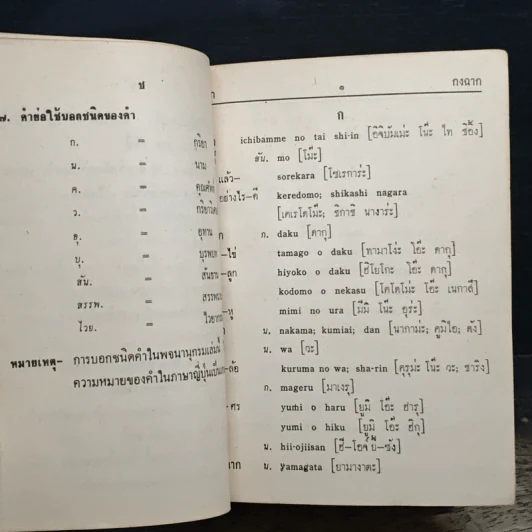 ช
๗. คำย่อใช้บอกชนิดของคำ
ก. = กริยา
น. = นาม
ค. =
ว. =
อุ. = อุทาน
บุ. =
สัน. =
สรรพ. =
ไวย. =
หมายเหตุ- การบอกชนิดคำในพจนานุกรมเล่มนี้
ความหมายของคำในภาษาญี่ปุ่นเป็น
๑ กงฉาก
ก
ichibamme no tai shi-in [อิจิบัมเม่ะ โน๊ะ ไท ชิอิ้ง]
สัน. mo [โม๊ะ]
แล้ว- sorekara [โซเรการ่ะ]
อย่างไร-ดี keredomo; shikashi nagara
[เคเรโดโม๊ะ; ชิกาชิ นางาร่ะ]
ก. daku [ดากุ]
-ไข่ tamago o daku [ทามาโง่ะ โอ๊ะ ดากุ]
-ลูก hiyoko o daku [ฮิโยโกะ โอ๊ะ ดากุ]
kodomo o nekasu [โคโดโม่ะ โอ๊ะ เนกาสึ]
-หู mimi no ura [มีมิ โน๊ะ อุร่ะ]
น. nakama; kumiai; dan [นากาม่ะ; คูมิไอ; ดัง]
น. wa [วะ]
-ล้อ kuruma no wa; sha-rin [คุรุม่ะ โน๊ะ วะ; ชาริง]
ก. mageru [มาเงรุ]
-ศร yumi o haru [ยูมิ โอ๊ะ ฮารุ]
yumi o hiku [ยูมิ โอ๊ะ ฮิกุ]
น. hii-ojiisan [ฮี-โอจิ๊อิ-ซัง]
น. yamagata [ยามางาตะ]